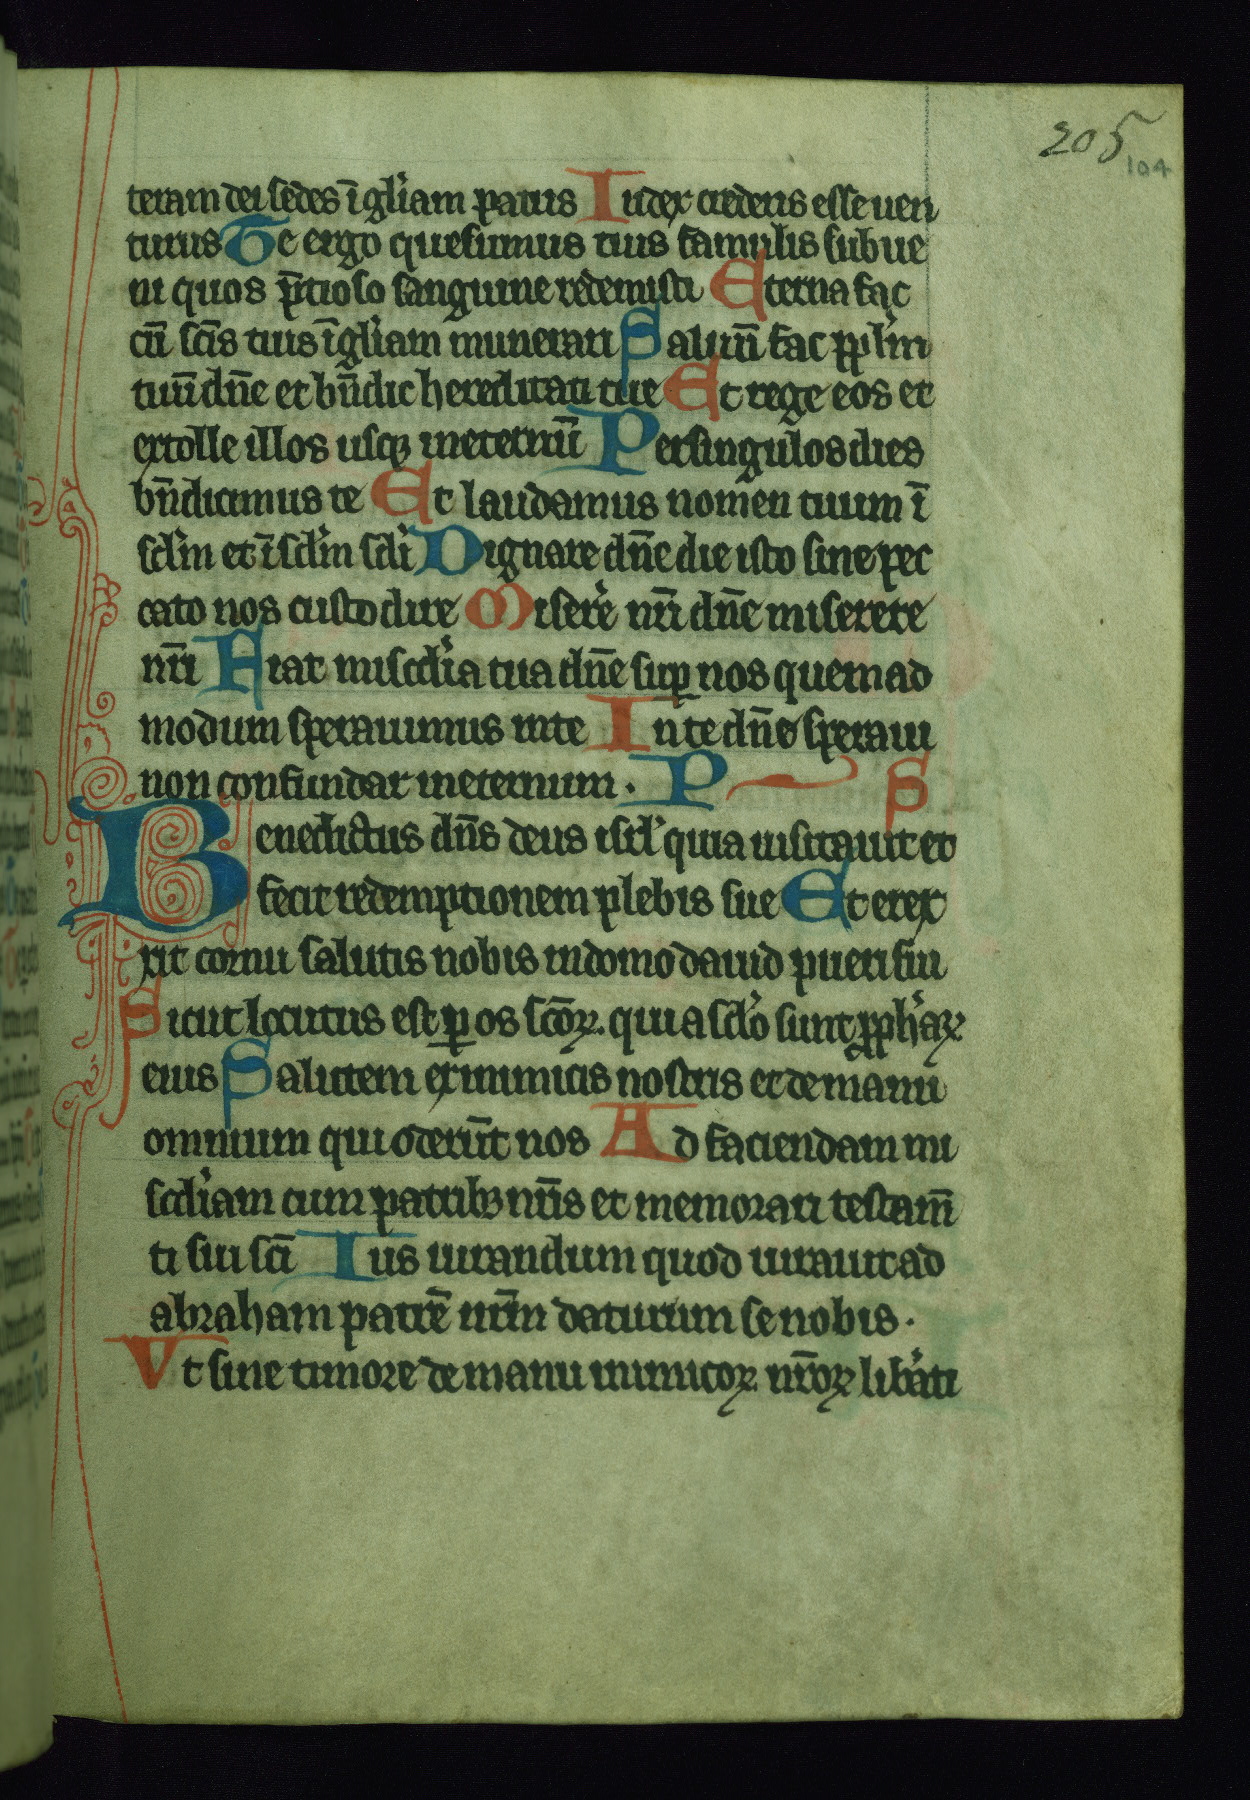 205
104
teram dei sedes ī gl'iam patris Iudex crederis esse uen
turus Te ergo quesumus tuis famulis subue
ni quos p̄tioso sanguine redemisti Eterna fac
cū sc̄is tuis ī gl'iam munerari Saluū fac ppl'm
tuū dn̄e et bn̄dic hereditati tue Et rege eos et
extolle illos usq; in eternū Per singulos dies
bn̄dicimus te Et laudamus nomen tuum ī
scl'm et ī scl'm scl'i Dignare dn̄e die isto sine pec
cato nos custodire Misere' nr̄i dn̄e miserere
nr̄i Fiat miscd'ia tua dn̄e sup̱ nos quemad
modum sperauimus in te In te dn̄e speraui
non confundar in eternum. P S
Benedictus dn̄s deus isrl' quia uisitauit et
fecit redemptionem plebis sue Et erex
xit cornu salutis nobis in domo dauid pueri sui
Sicut locutus est p̱ os sc̄oꝝ. qui a scl'o sunt ꝓph'aꝝ
eius Salutem ex inimicis nostris et de manu
omnium qui oderūt nos Ad faciendam mi
scd'iam cum patribꝫ nr̄is et memorari testam̄
ti sui sc̄i Ius iurandum quod iurauit ad
abraham patrē nr̄m daturum se nobis.
Vt sine timore de manu inimicoꝝ nr̄oꝝ lib'ati